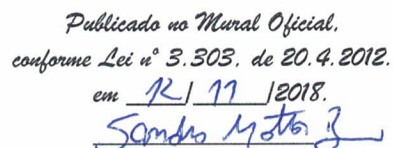 Publicado no Mural Oficial,
conforme Lei nº 3.303, de 20.4.2012.
em 12/ 11 /2018.